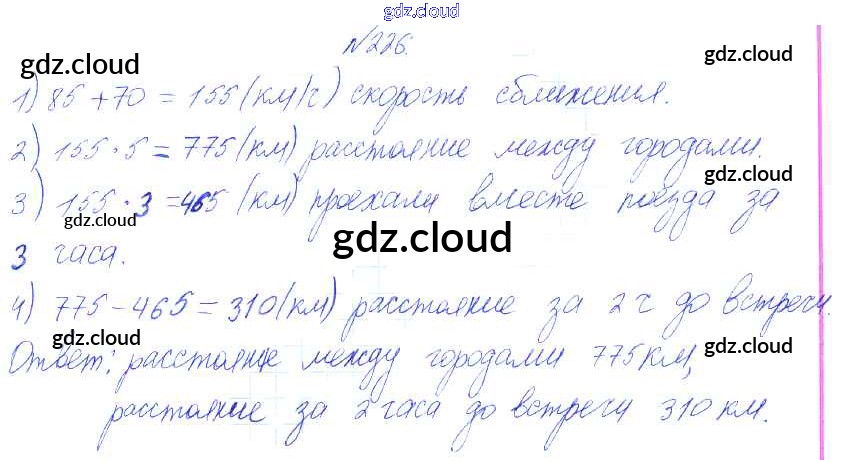 gdz.cloud
№226.
gdz.cloud gdz.cloud
1) 85 + 70 = 155 (км/ч) скорость сближения.
gdz.cloud
2) 155 · 5 = 775 (км) расстояние между городами.
gdz.cloud
3) 155 · 3 = 465 (км) проехали вместе поезда за
gdz.cloud
gdz.cloud
3 часа.
4) 775 - 465 = 310 (км) расстояние за 2 ч до встречи.
gdz.cloud gdz.cloud
Ответ: расстояние между городами 775 км,
расстояние за 2 часа до встречи 310 км.